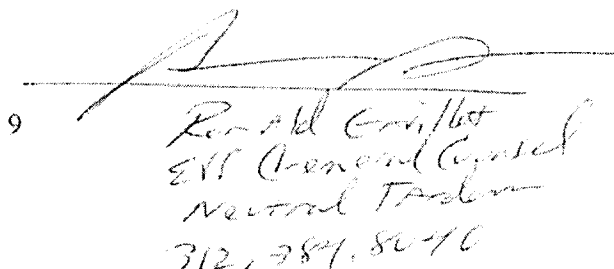 9
Ronald Gavillet
EVP General Counsel
Neutral Tandem
312, 384, 8040